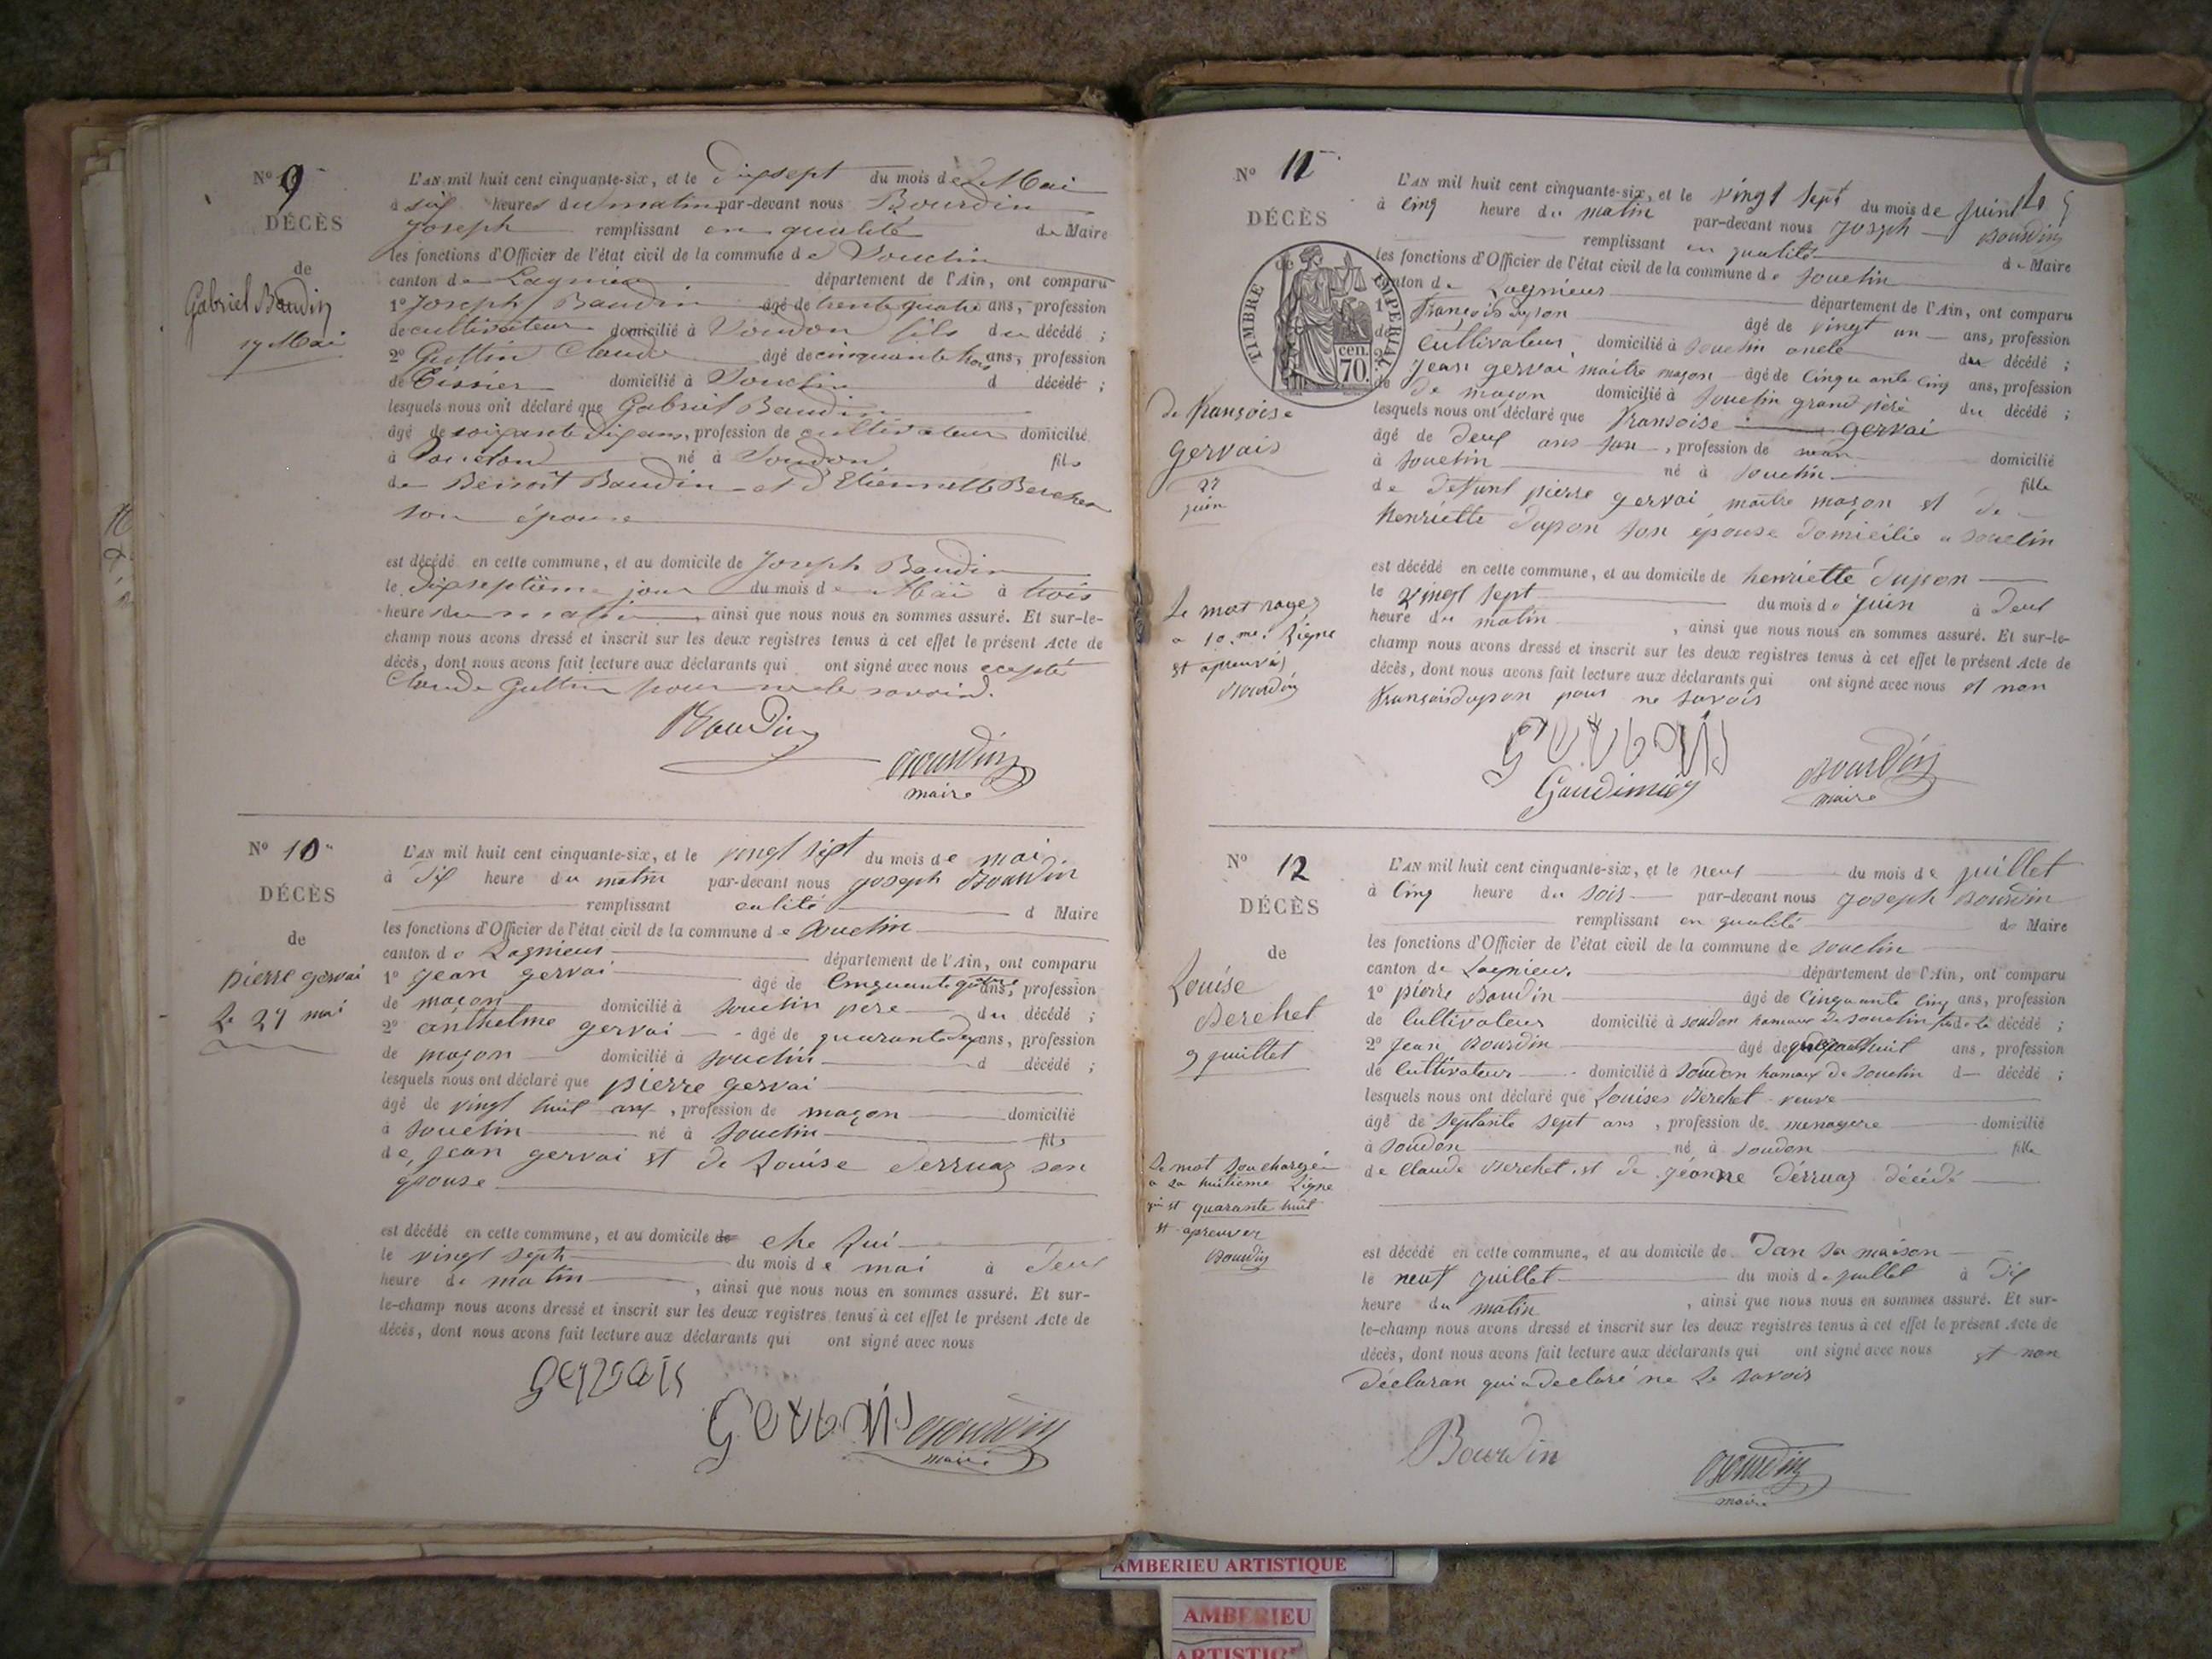 N° 9
DÉCÈS
de
Gabriel Baudin
17 Mai
L'AN mil huit cent cinquante-six, et le dix sept du mois de Mai
à six heures du matin par-devant nous Bourdin
Joseph remplissant en qualité de Maire
les fonctions d'Officier de l'état civil de la commune de Souclin
canton de Lagnieu département de l'Ain, ont comparu
1° Joseph Baudin âgé de trente quatre ans, profession
de cultivateur domicilié à Soudon fils du décédé ;
2° Guttin Claude âgé de cinquante trois ans, profession
de Tissier domicilié à Souclin d décédé ;
lesquels nous ont déclaré que Gabriel Baudin
âgé de soixante dix ans, profession de cultivateur domicilié
à né à Soudon fils
de Benoît Baudin et d'Etiennette Berchet
son épouse
est décédé en cette commune, et au domicile de Joseph Baudin
le dix septième jour du mois de Mai à trois
heures du matin ainsi que nous nous en sommes assuré. Et sur-le-
champ nous avons dressé et inscrit sur les deux registres tenus à cet effet le présent Acte de
décès, dont nous avons fait lecture aux déclarants qui ont signé avec nous excepté
Claude Guttin pour ne le savoir.
Baudin
Bourdin
maire
N° 10
DÉCÈS
de
pierre gervai
le 27 mai
L'AN mil huit cent cinquante-six, et le vingt sept du mois de mai
à dix heure du matin par-devant nous joseph Bourdin
remplissant calité d Maire
les fonctions d'Officier de l'état civil de la commune de souclin
canton de Lagnieux département de l'Ain, ont comparu
1° jean gervai âgé de cinquante ans, profession
de maçon domicilié à souclin pere du décédé ;
2° anthelme gervai âgé de quarante ans, profession
de maçon domicilié à souclin d décédé ;
lesquels nous ont déclaré que pierre gervai
âgé de vingt huit ans, profession de maçon domicilié
à souclin né à souclin fils
de jean gervai et de Louise derruaz son
epouse
est décédé en cette commune, et au domicile de che lui
le vingt sept du mois de mai à deux
heure du matin, ainsi que nous nous en sommes assuré. Et sur-
le-champ nous avons dressé et inscrit sur les deux registres tenus à cet effet le présent Acte de
décès, dont nous avons fait lecture aux déclarants qui ont signé avec nous
gervais
Gervais Bourdin
maire
N° 11
DÉCÈS
de
TIMBRE IMPERIAL
cen.
70.
de françoise
gervais
27
juin
L'AN mil huit cent cinquante-six, et le vingt sept du mois de juin
à cinq heure du matin par-devant nous joseph Bourdin
remplissant en qualité de Maire
les fonctions d'Officier de l'état civil de la commune de souclin
canton de Lagnieux département de l'Ain, ont comparu
1° françois dupon âgé de vingt un ans, profession
de cultivateur domicilié à souclin oncle du décédé ;
2° jean gervai maitre maçon âgé de cinquante cinq ans, profession
de de maçon domicilié à souclin grand père du décédé ;
lesquels nous ont déclaré que fransoise gervai
âgé de deux ans, profession de domicilié
à souclin né à souclin fille
de defunt pierre gervai maitre maçon et de
henriette dupon son epouse domicilie a souclin
est décédé en cette commune, et au domicile de henriette dupon
le vingt sept du mois de juin à deux
heure du matin, ainsi que nous nous en sommes assuré. Et sur-le-
champ nous avons dressé et inscrit sur les deux registres tenus à cet effet le présent Acte de
décès, dont nous avons fait lecture aux déclarants qui ont signé avec nous et non
françois dupon pour ne savoir
Le mot rayez
a 10.me Ligne
est aprouvés
Bourdin
Gervais
Gaudimier
Bourdin
maire
N° 12
DÉCÈS
de
Louise
Berchet
9 juillet
L'AN mil huit cent cinquante-six, et le neuf du mois de juillet
à cinq heure du soir par-devant nous joseph Bourdin
remplissant en qualité de Maire
les fonctions d'Officier de l'état civil de la commune de souclin
canton de Lagnieux département de l'Ain, ont comparu
1° pierre Baudin âgé de cinquante cinq ans, profession
de cultivateur domicilié à soudon hamaux de souclin décédé ;
2° jean Bourdin âgé de quarante huit ans, profession
de cultivateur domicilié à soudon hamaux de souclin d décédé ;
lesquels nous ont déclaré que Louises Berchet veuve
âgé de septante sept ans, profession de menagere domicilié
à soudon né à soudon fille
de claude Berchet et de jéanne dérruaz décédé
est décédé en cette commune, et au domicile de dan sa maison
le neuf juillet du mois de juillet à dix
heure du matin, ainsi que nous nous en sommes assuré. Et sur-
le-champ nous avons dressé et inscrit sur les deux registres tenus à cet effet le présent Acte de
décès, dont nous avons fait lecture aux déclarants qui ont signé avec nous et non
déclaran qui a declaré ne le savoir
Le mot sourchargé
a la huitieme Ligne
qui est quarante huit
et aprouver
Bourdin
Bourdin
Bourdin
maire
AMBERIEU ARTISTIQUE
AMBERIEU
ARTISTIQUE